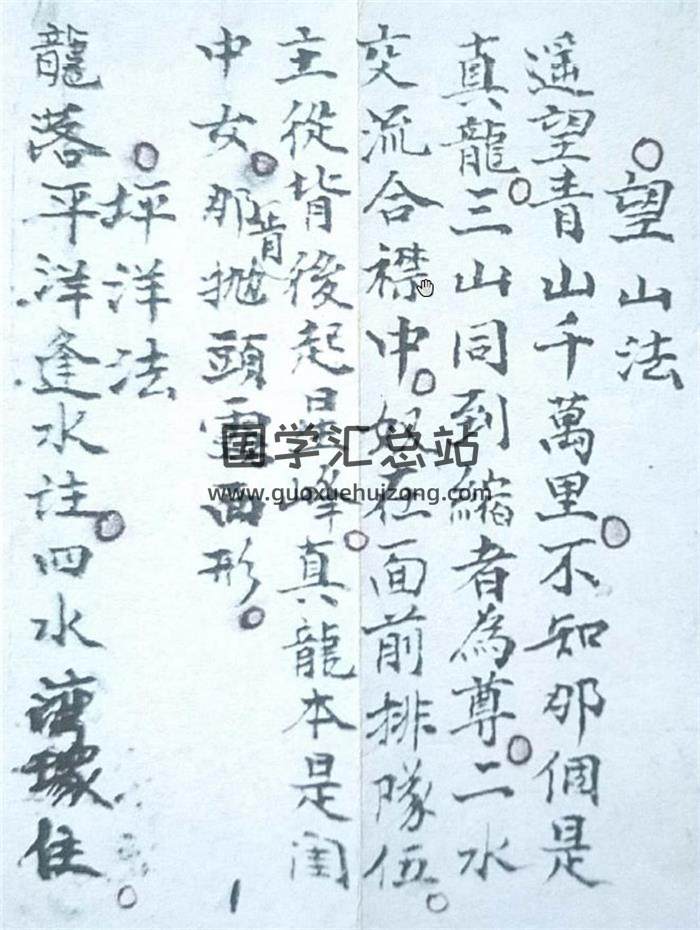 ○望山法
遥望青山千萬里。不知那個是
真龍。三山同到縮者為尊。二水
交流合襟中。奴在面前排隊伍。
主從背後起星峰。真龍本是閨
中女。那肯抛頭露面形。
○坪洋法
龍落平洋逢水註。四水灣環住。
国学汇总站
www.guoxuehuizong.com